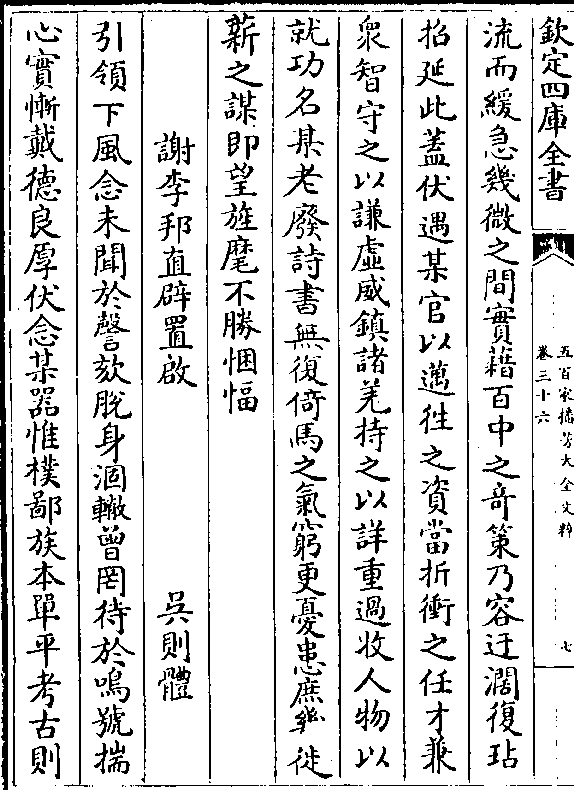 欽定四庫全書
五百家播芳大全文粹
卷三十六
七
流而緩急幾微之間實藉百中之奇策乃容迂濶復玷
招延此蓋伏遇某官以邁徃之資當折衝之任才兼
衆智守之以謙虛威鎮諸羌持之以詳重過收人物以
就功名某老廢詩書無復倚馬之氣窮更憂患庶幾徙
薪之謀即望旌麾不勝悃愊
謝李邦直辟置啟 吳則體
引領下風念未聞於謦欬脫身涸轍曾罔待於鳴號揣
心實慚戴德良厚伏念某器惟樸鄙族本單平考古則